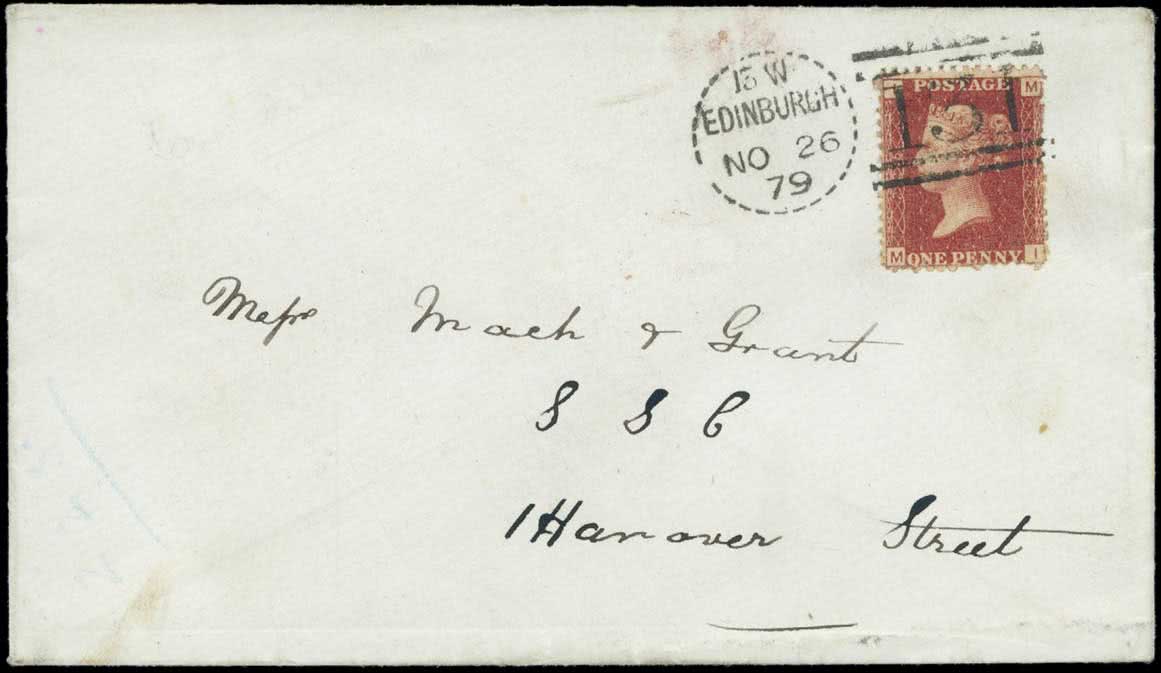 13 W
EDINBURGH
NO 26
79
131
POSTAGE M
M ONE PENNY I
Messrs Mach & Grant
S S C
1 Hanover Street